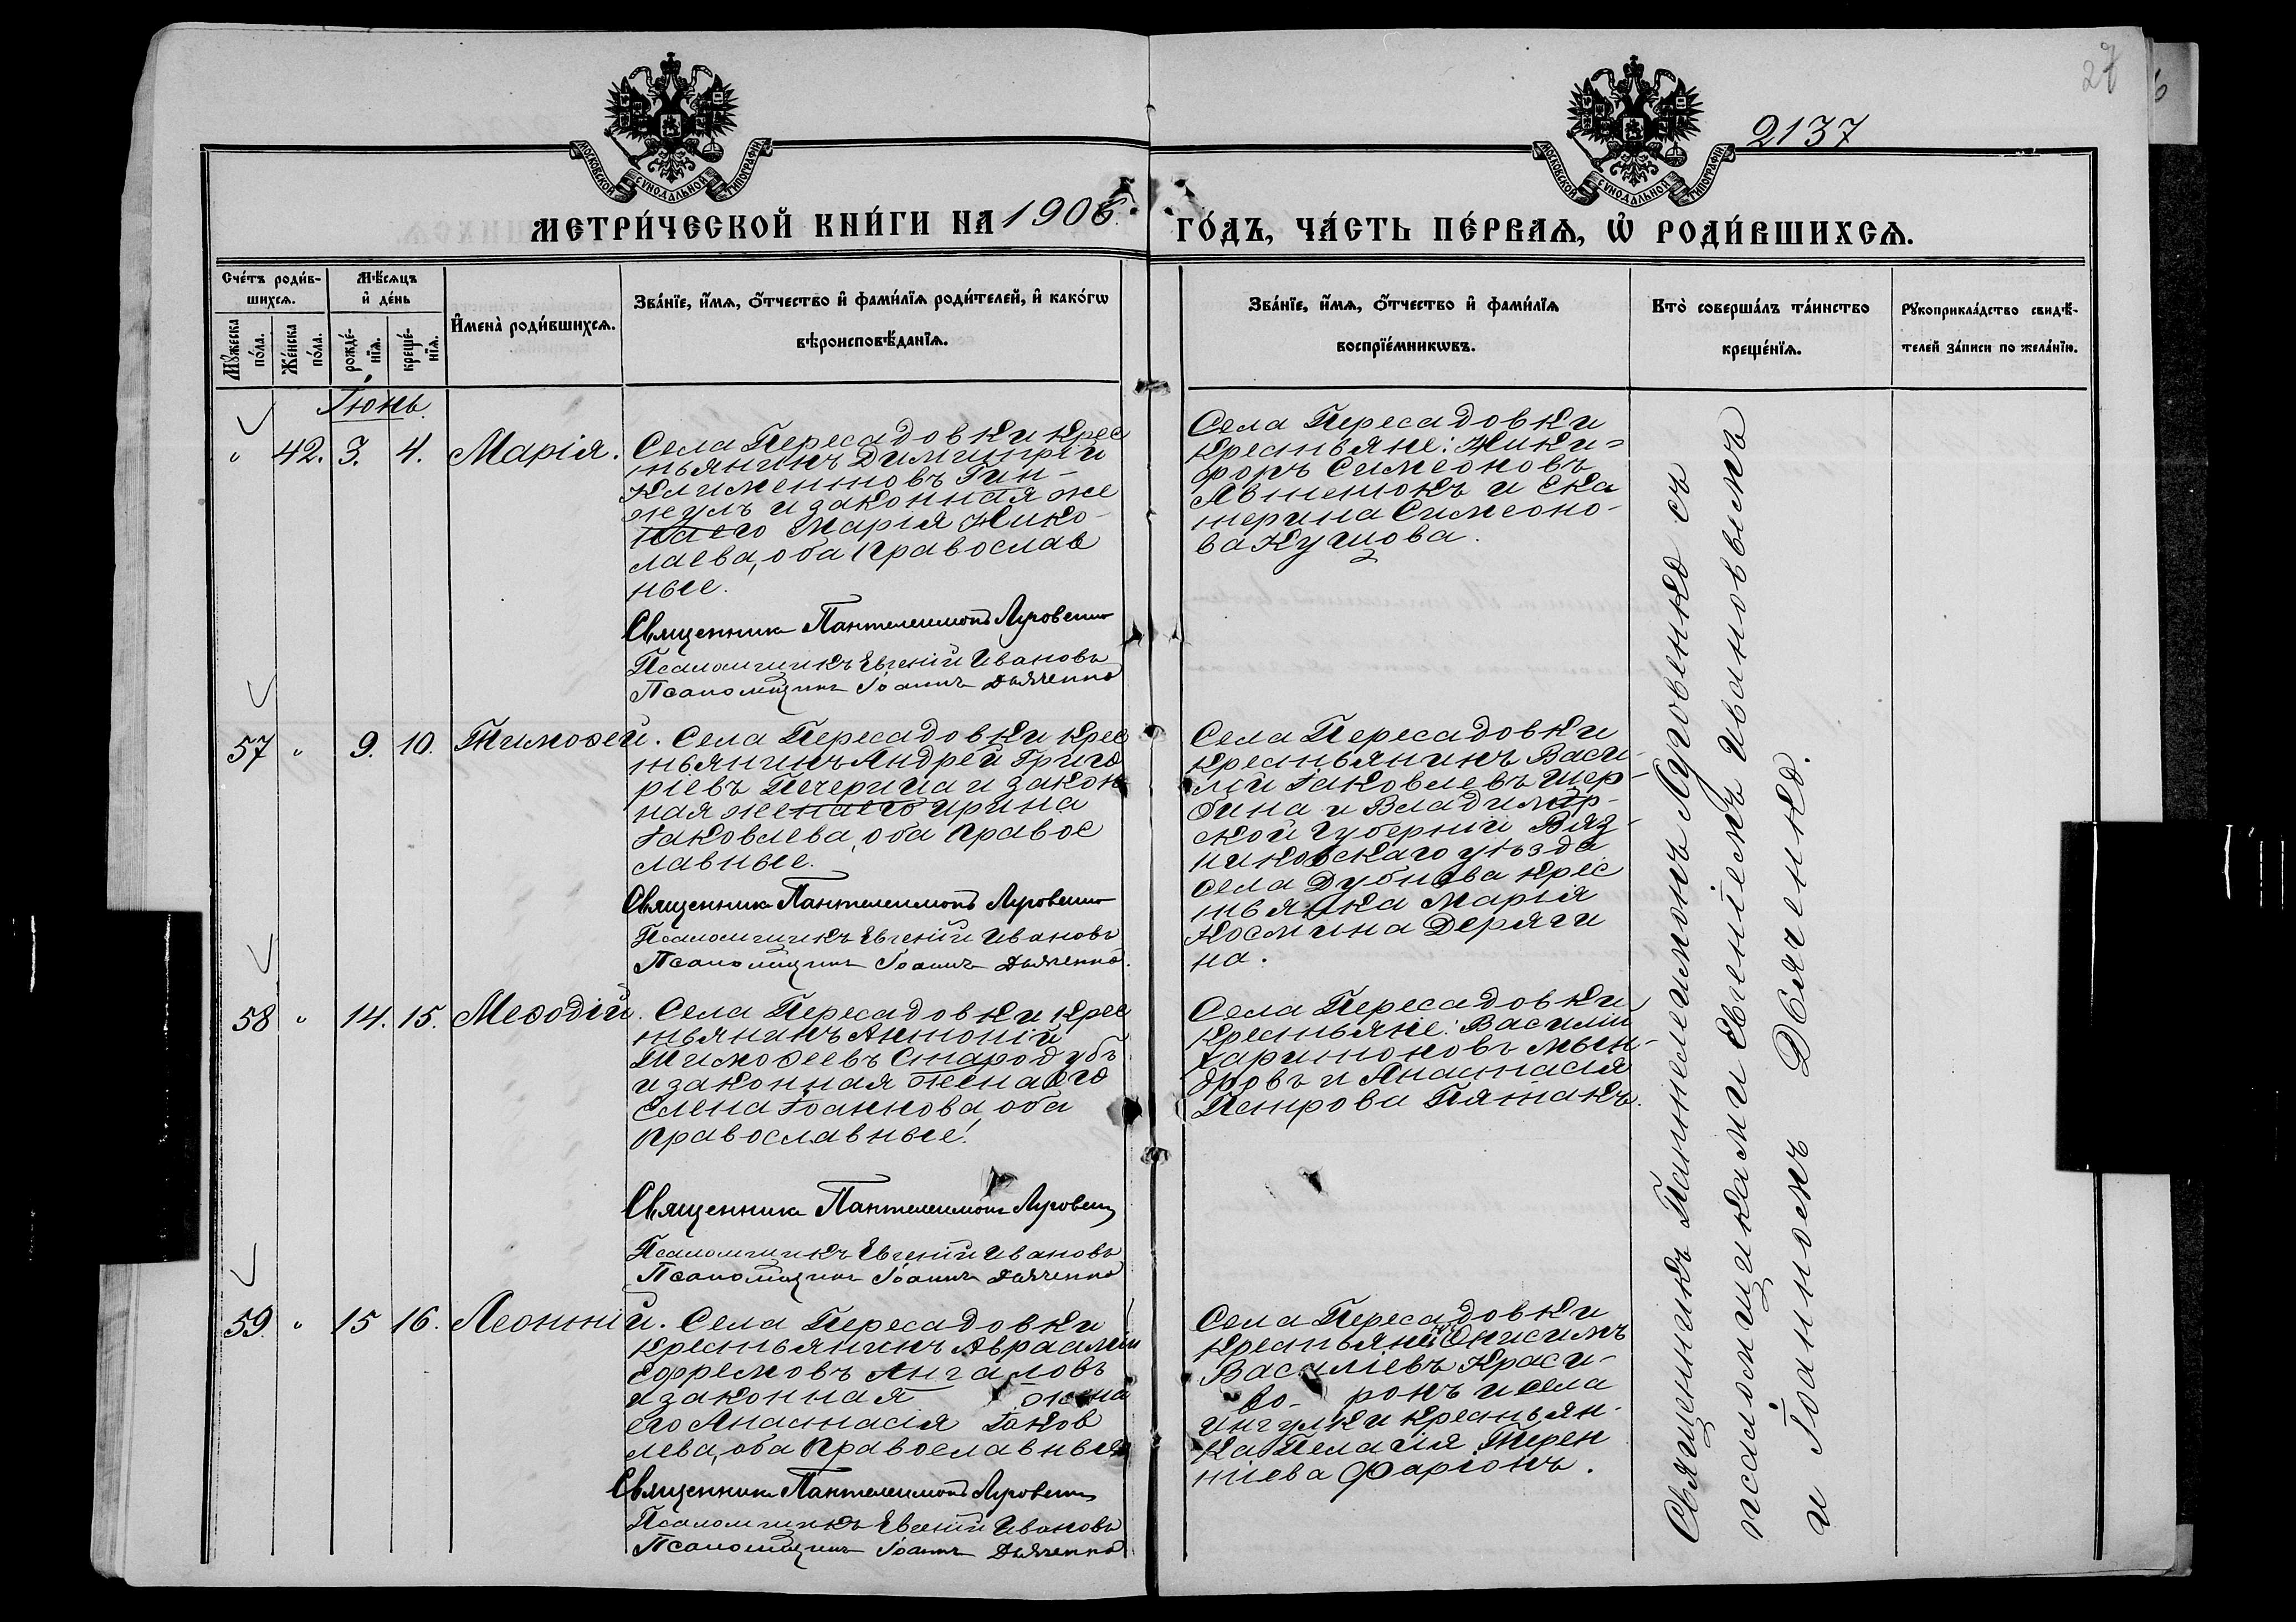 27
6
2137
МОСКОВСКОЙ СѴНОДАЛЬНОЙ ТИПОГРАФІИ
МОСКОВСКОЙ СѴНОДАЛЬНОЙ ТИПОГРАФІИ
МЕТРИ́ЧЕСКОЙ КНИ́ГИ НА 1906.
ГО́ДЪ, ЧА́СТЬ ПЕ́РВАѦ, Ѡ҆ РОДИ́ВШИХСѦ.
Сче́тъ роди́в-
шихсѧ.
Мꙋ́жеска по́ла.
Же́нска по́ла.
Мѣ́сѧцъ
и҆ де́нь
рожде́-
нїѧ.
креще́-
нїѧ.
И҆мена̀ роди́вшихсѧ.
Зва́нїе, и҆́мѧ, о҆́тчество и҆ фами́лїѧ роди́телей, и҆ како́гѡ
вѣроисповѣ́данїѧ.
Зва́нїе, и҆́мѧ, о҆́тчество и҆ фами́лїѧ
воспрїе́мникѡвъ.
Кто̀ соверша́лъ та́инство
креще́нїѧ.
Рꙋкоприкла́дство свидѣ́-
телей за́писи по жела́нїю.
Іюнь.
" 42. 3. 4. Марія.
Села Пересадовки крес
тьянинъ Димитрій
Климентовъ Гин-
жулъ и законная же
на его Марія Нико-
лаева, оба православ
ные.
Священникъ Пантелеимонъ Луговенко
Псаломщикъ Евгеній Ивановъ
Псаломщикъ Іоаннъ Дьяченко
Села Пересадовки
крестьяне: Ники-
форъ Симеоновъ
Явтенюкъ и Ека
терина Симеоно-
ва
57 " 9. 10. Тимоѳей.
Села Пересадовки крес
тьянинъ Андрей Григо
ріевъ Печерица и закон
ная жена его Ирина
Іаковлева, оба правос
славные.
Священникъ Пантелеимонъ Луговенко
Псаломщикъ Евгеній Ивановъ
Псаломщикъ Іоаннъ Дьяченко.
Села Пересадовки
крестьянинъ Васи-
лій Іаковлевъ Щер-
бина и Владимір-
ской губерніи Вяз-
никовскаго уѣзда
села крес
тьянка Марія
Космина Деряги
на.
58 " 14. 15. Меѳодій.
Села Пересадовки крес
тьянинъ Антоній
Тимоѳеевъ Стародубъ
и законная жена его
Елена Іоаннова, оба
православные.
Священникъ Пантелеимонъ Луговенко
Псаломщикъ Евгеній Ивановъ
Псаломщикъ Іоаннъ Дьяченко
Села Пересадовки
крестьяне: Василій
Харитоновъ Мын-
дровъ и Анастасія
Петрова Пяташъ.
59. " 15 16. Леонтій.
Села Пересадовки
крестьянинъ Авраамій
Ефремовъ Ангаловъ
и законная жена
его Анастасія Іаков
лева, оба православные
Священникъ Пантелеимонъ Луговенко
Псаломщикъ Евгеній Ивановъ
Псаломщикъ Іоаннъ Дьяченко
Села Пересадовки
Онисимъ
Василіевъ Краси-
во- ронъ и села
Ингулки крестьян-
ка Пелагія Терен
тіева Фаріонъ.
Священникъ Пантелеимонъ Луговенко съ
псаломщиками Евгеніемъ Ивановымъ
и Іоанномъ Дьяченко.